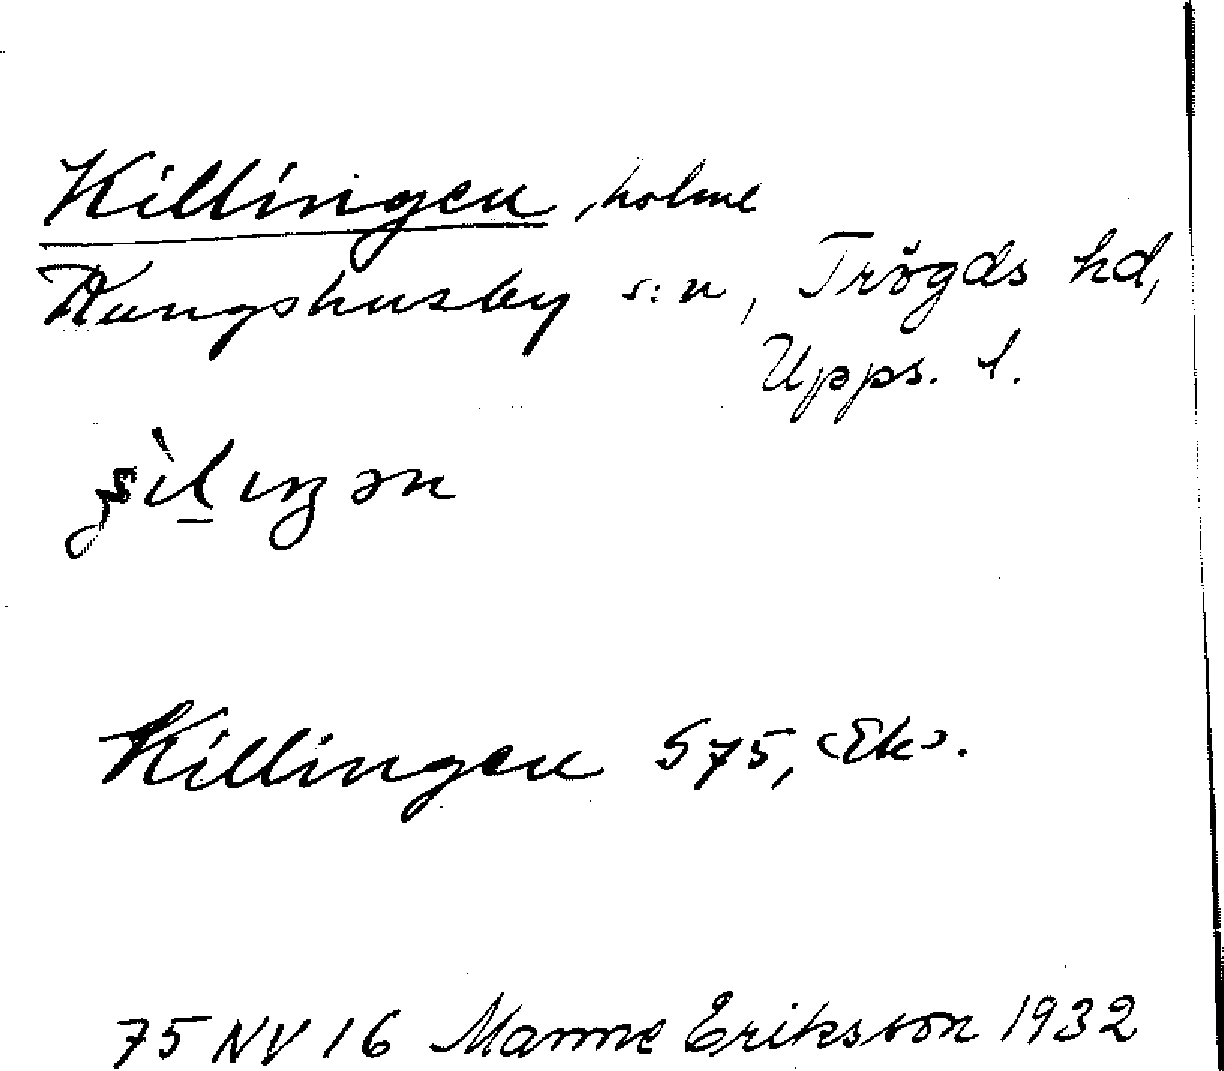 Killingen, holme
Kungshusby s:n, Trögds hd,
Upps. l.
Killingen S75, Ek.
75 NV 16 Manne Eriksson 1932